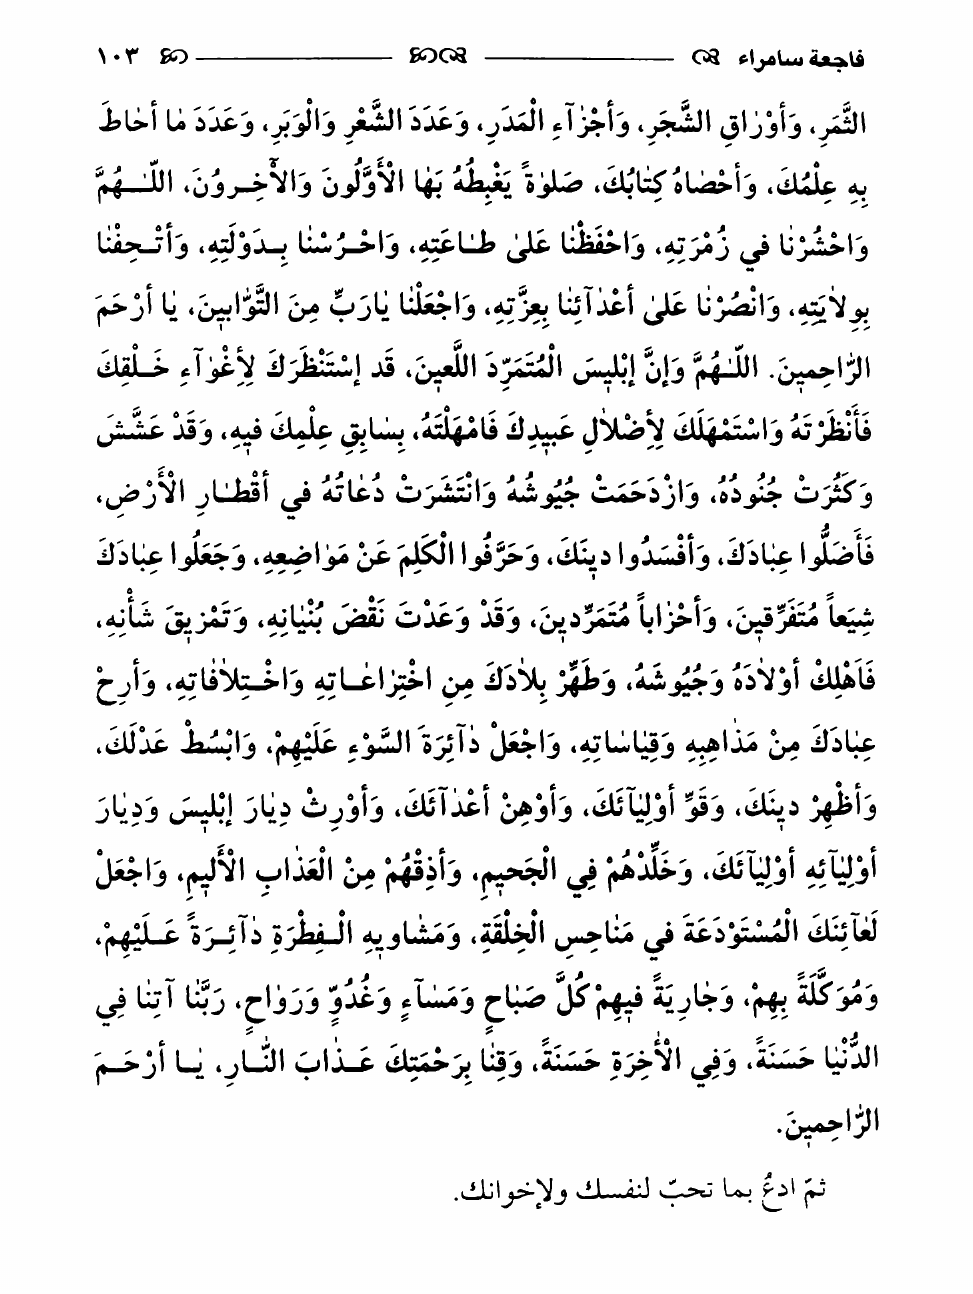 فاجعة سامراء ١٠٣
الثَّمَرِ، وَأَوْرٰاقِ الشَّجَرِ، وَأَجْزٰآءِ الْمَدَرِ، وَعَدَدَ الشَّعْرِ وَالْوَبَرِ، وَعَدَدَ مٰا أَحٰاطَ
بِهِ عِلْمُكَ، وَأَحْصٰاهُ كِتٰابُكَ، صَلوٰةً يَغْبِطُهُ بَهٰا الْأَوَّلُونَ وَالآخِرُونَ، اللّـهُمَّ
وَاحْشُرْنٰا في زُمْرَتِهِ، وَاحْفَظْنٰا عَلىٰ طٰاعَتِهِ، وَاحْرُسْنٰا بِدَوْلَتِهِ، وَأَتْحِفْنٰا
بِوِلاٰيَتِهِ، وَانْصُرْنٰا عَلىٰ أَعْدٰآئِنٰا بِعِزَّتِهِ، وَاجْعَلْنٰا يٰارَبِّ مِنَ التَّوّٰابينَ، يٰا أَرْحَمَ
الرّٰاحِمينَ. اللّـهُمَّ وَإِنَّ إِبْليسَ الْمُتَمَرِّدَ اللَّعينَ، قَد إِسْتَنْظَرَكَ لِأِغْوٰآءِ خَـلْقِكَ
فَأَنْظَرْتَهُ وَاسْتَمْهَلَكَ لِأِضْلاٰلِ عَبيدِكَ فَامْهَلْتَهُ، بِسٰابِقِ عِلْمِكَ فيهِ، وَقَدْ عَشَّشَ
وَكَثُرَتْ جُنُودُهُ، وَازْدَحَمَتْ جُيُوشُهُ وَانْتَشَرَتْ دُعٰاتُهُ في أَقْطٰارِ الْأَرْضِ،
فَأَضَلُّوا عِبٰادَكَ، وَأَفْسَدُوا دينَكَ، وَحَرَّفُوا الْكَلِمَ عَنْ مَوٰاضِعِهِ، وَجَعَلُوا عِبٰادَكَ
شِيَعاً مُتَفَرِّقينَ، وَأَحْزٰاباً مُتَمَرِّدينَ، وَقَدْ وَعَدْتَ نَقْضَ بُنْيٰانِهِ، وَتَمْزيقَ شَأْنِهِ،
فَاَهْلِكْ أَوْلاٰدَهُ وَجُيُوشَهُ، وَطَهِّرْ بِلاٰدَكَ مِنِ اخْتِرٰاعٰاتِهِ وَاخْتِلاٰفٰاتِهِ، وَأَرِحْ
عِبٰادَكَ مِنْ مَذٰاهِبِهِ وَقِيٰاسٰاتِهِ، وَاجْعَلْ دٰآئِرَةَ السَّوْءِ عَلَيْهِمْ، وَابْسُطْ عَدْلَكَ،
وَأَظْهِرْ دينَكَ، وَقَوِّ أَوْلِيٰآئَكَ، وَأَوْهِنْ أَعْدٰآئَكَ، وَأَوْرِثْ دِيٰارَ إِبْليسَ وَدِيٰارَ
أَوْلِيٰآئِهِ أَوْلِيٰآئَكَ، وَخَلِّدْهُمْ فِي الْجَحيمِ، وَأَذِقْهُمْ مِنْ الْعَذٰابِ الْأَليمِ، وَاجْعَلْ
لَعٰآئِنَكَ الْمُسْتَوْدَعَةَ في مَنٰاحِسِ الْخِلْقَةِ، وَمَشٰاويهِ الْـفِطْرَةِ دٰآئِـرَةً عَـلَيْهِمْ،
وَمُوَكَّلَةً بِهِمْ، وَجٰارِيَةً فيهِمْ كُلَّ صَبٰاحٍ وَمَسٰآءٍ وَغُدُوٍّ وَرَوٰاحٍ، رَبَّنٰا آتِنٰا فِي
الدُّنْيٰا حَسَنَةً، وَفِي الْأٰخِرَةِ حَسَنَةً، وَقِنٰا بِرَحْمَتِكَ عَـذٰابَ النّٰـارِ، يٰـا أَرْحَـمَ
الرّٰاحِمينَ.
ثمّ ادعُ بما تحبّ لنفسك ولإخوانك.